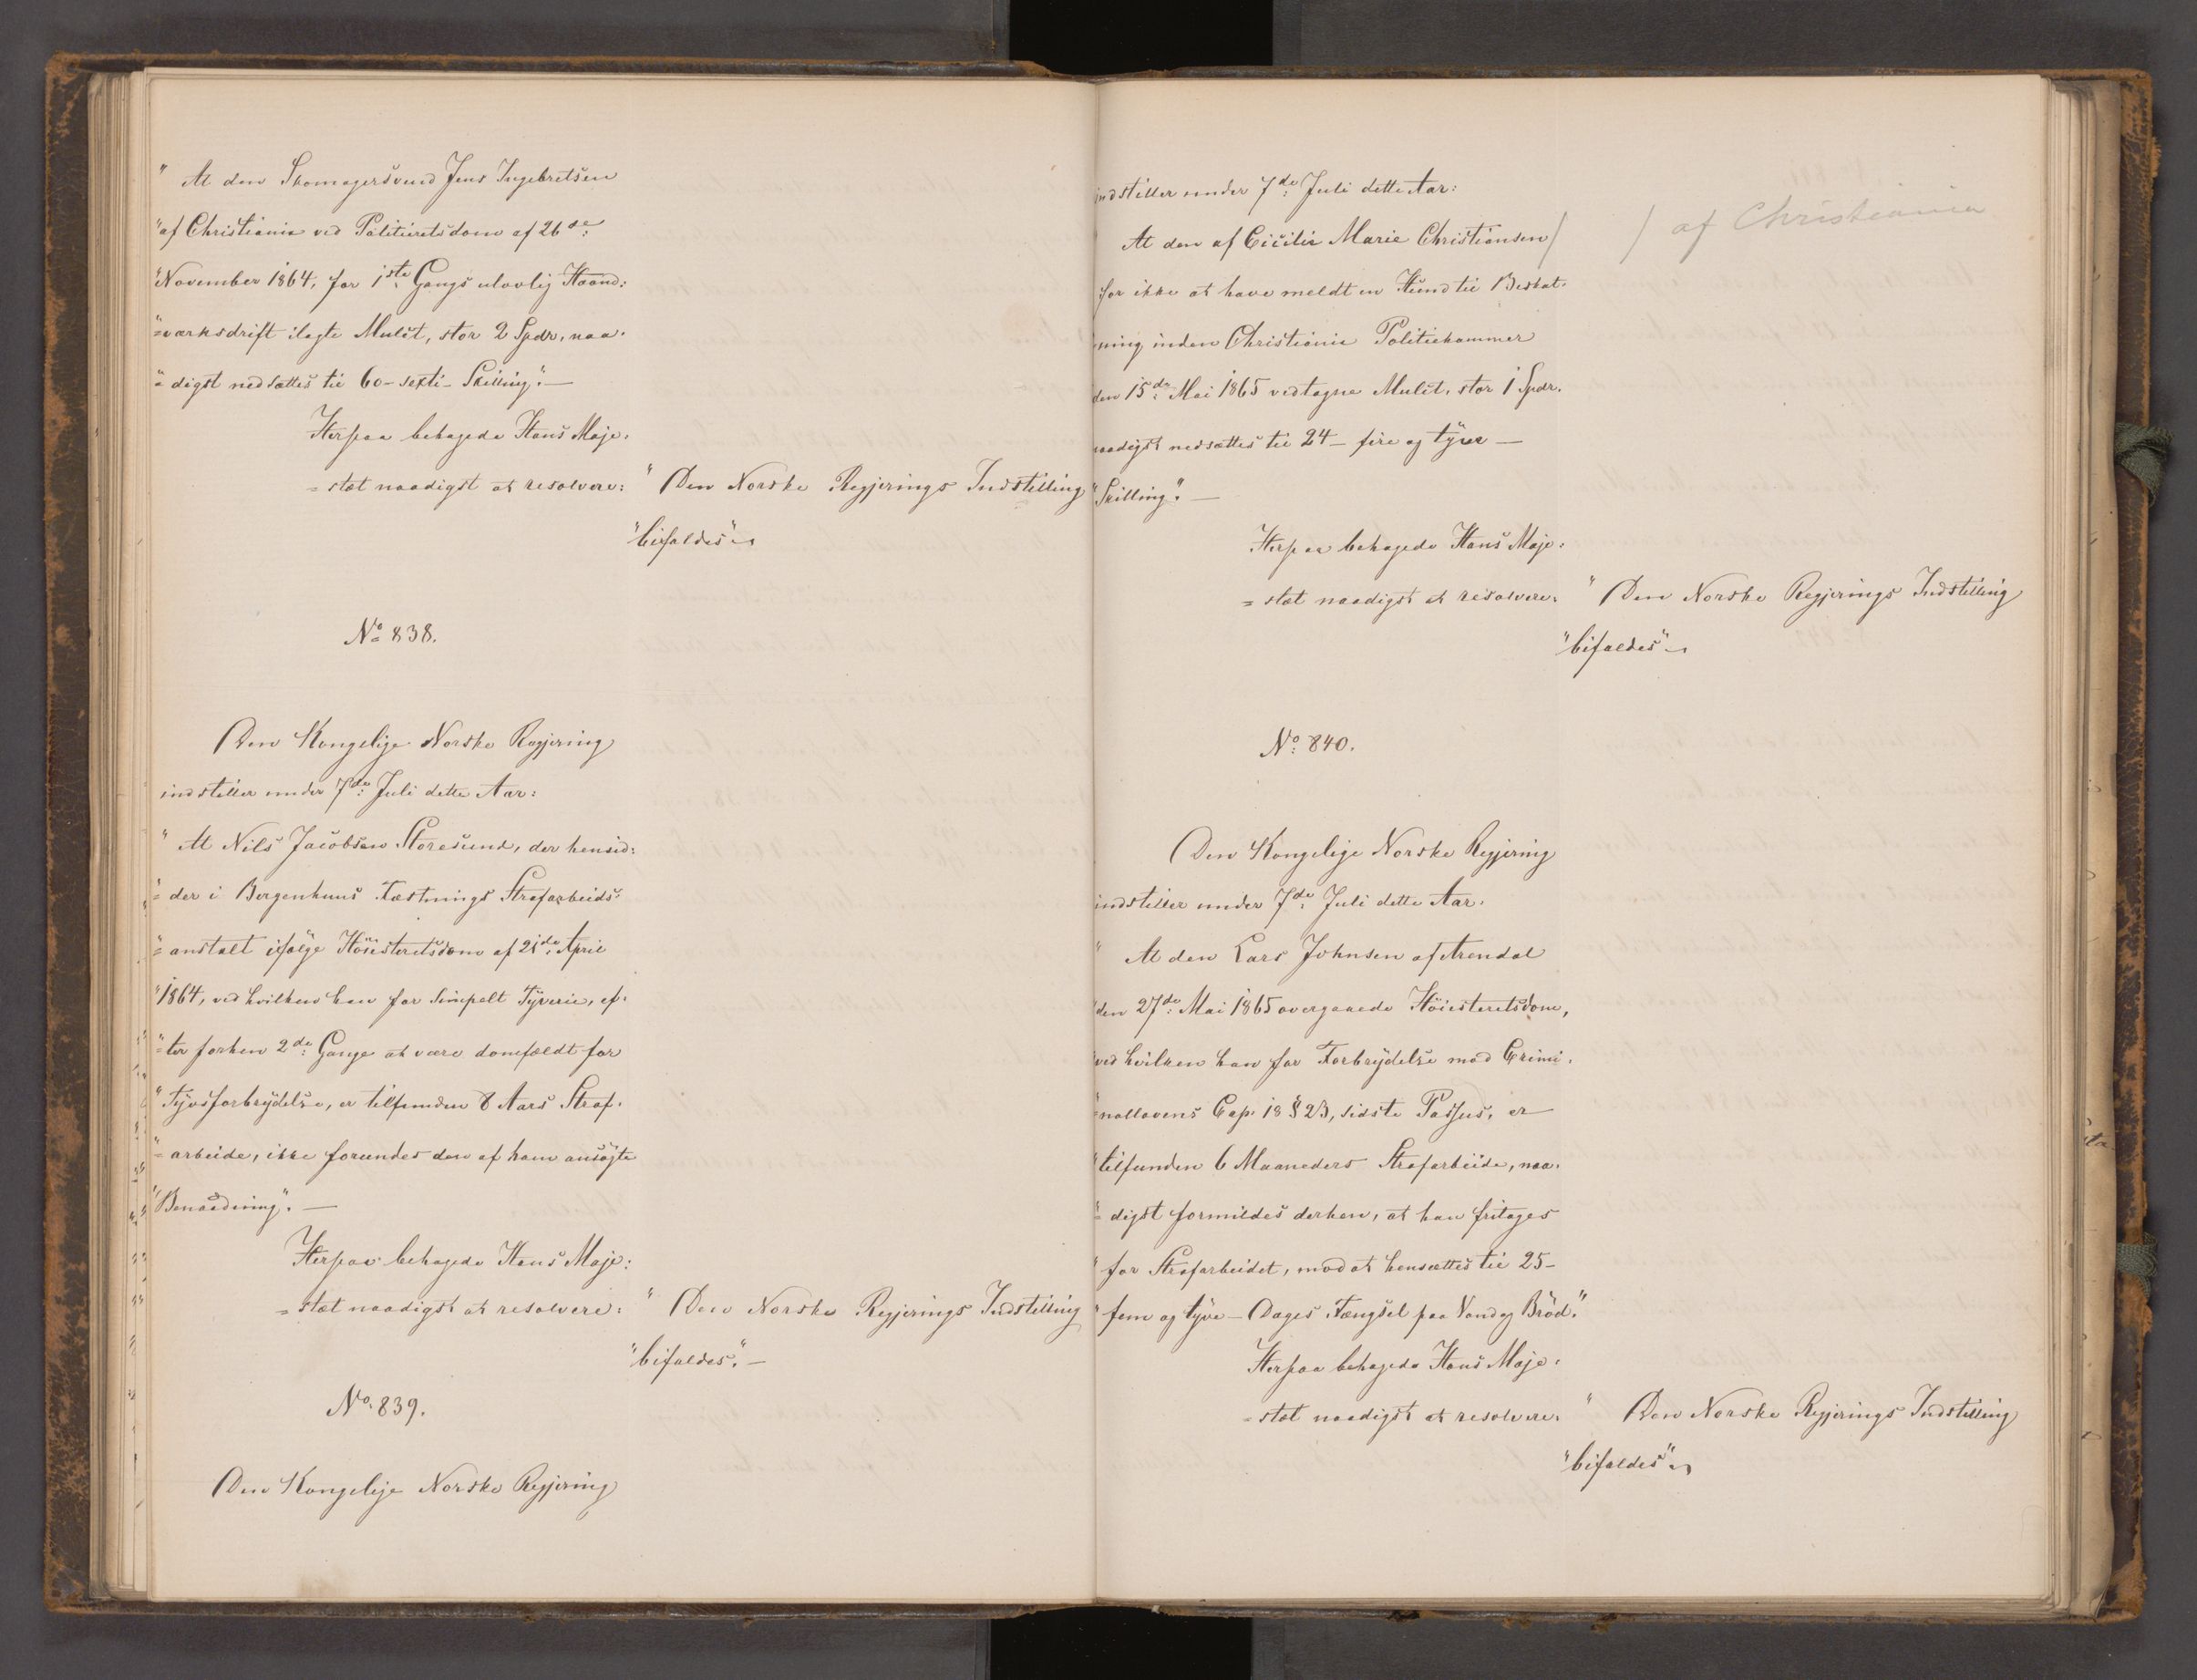 " At den Skomagersvend Jens Ingebretsen
" af Christiania ved Politieretsdom af 26de
" November 1864, for 1ste Gangs ulovlig Haand:
"=værksdrift ilagte Mulct, stor 2 Spdr, naa-
"=digst nedsættes til 60 - sexti - Skilling". —
Herpaa behagede Hans Maje-
=stæt naadigst at resolvere: " Den Norske Regjerings Indstilling
" bifaldes".
No 838.
Den Kongelige Norske Regjering
indstiller under 7de Juli dette Aar:
" At Nils Jacobsen Storesund, der hensid:
"=der i Bergenhuus Fæstnings Strafarbeids-
"=anstalt ifølge Höiesteretsdom af 21de April
" 1864, ved hvilken han for simpelt Tyverie, ef-
"=ter forhen 2de Gange at være domfældt for
" Tyvsforbrydelse, er tilfunden 8 Aars Straf-
"=arbeide, ikke forundes den af ham ansögte
" Benaadning". —
Herpaa behagede Hans Maje:
=stæt naadigst at resolvere: " Den Norske Regjerings Indstilling
" bifaldes". —
No 839.
Den Kongelige Norske Regjering
indstiller under 7de Juli dette Aar:
At den af Cicilie Marie Christiansen / / af Christiania
for ikke at have meldt en Hund til Beskat-
ning inden Christiania Politiekammer
den 15de Mai 1865 vedtagne Mulct, stor 1 Spdr.
naadigst nedsættes til 24 - fire og tyve —
" Skilling". —
Herpaa behagede Hans Maje:
=stæt naadigst at resolvere: " Den Norske Regjerings Indstilling
" bifaldes".
No 840.
Den Kongelige Norske Regjering
indstiller under 7de Juli dette Aar:
" At den Lars Johnsen af Arendal
" den 27de Mai 1865 overgaaede Höiesteretsdom,
" ved hvilken han for Forbrydelse mod Crimi-
"=nallovens Cap. 18 § 23, sidste Passus, er
" tilfunden 6 Maaneders Strafarbeide, naa-
"=digst formildes derhen, at han fritages
" for Strafarbeidet, mod at hensættes til 25 -
" fem og tyve - Dages Fængsel paa Vand og Bröd."
Herpaa behagede Hans Maje:
=stæt naadigst at resolvere: " Den Norske Regjerings Indstilling
" bifaldes".